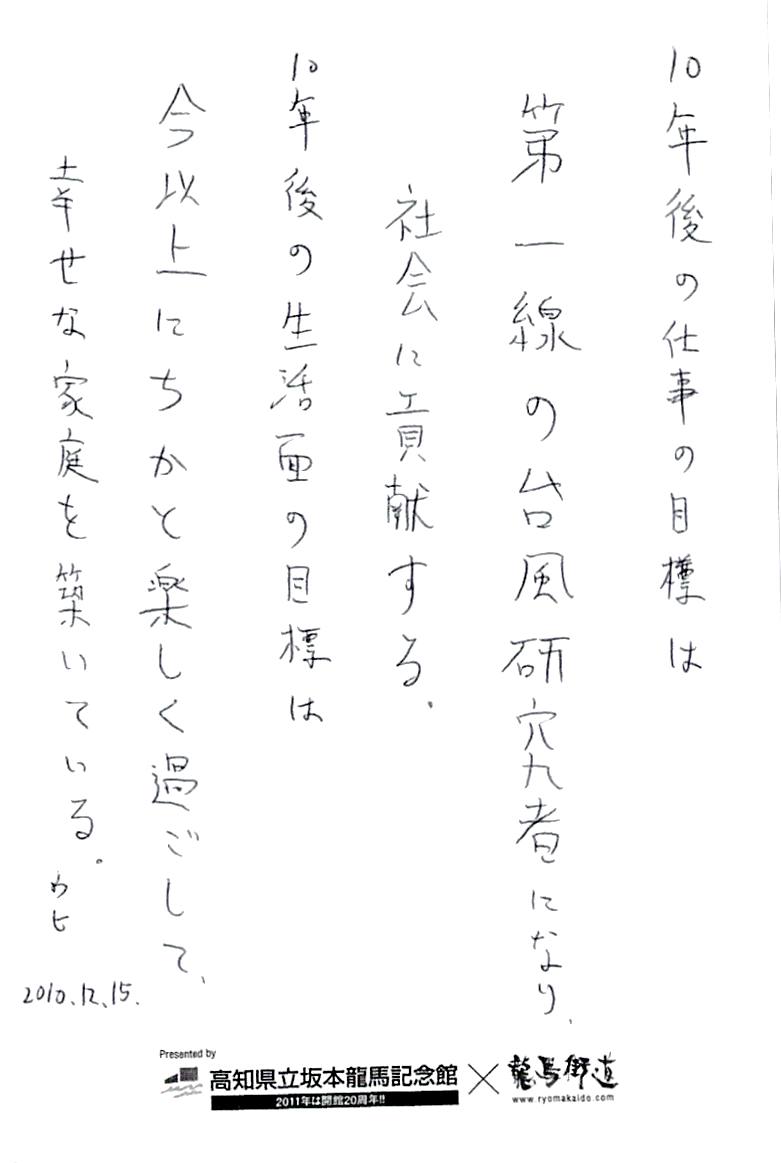 10年後の仕事の目標は
第一線の台風研究者になり、
社会に貢献する。
10年後の生活面の目標は
今以上にちかと楽しく過ごして、
幸せな家庭を築いている。
ウヒ
2010.12.15.
Presented by
高知県立坂本龍馬記念館
2011年は開館20周年!!
×
龍馬街道
www.ryomakaido.com